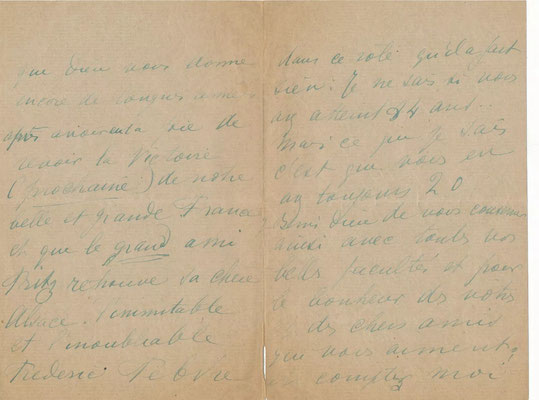 que Dieu vous donne
encore de longues années
après
revoir la Victoire
(prochaine) de notre
belle et grande France
et que le grand ami
Fritz retrouve sa chère
Alsace. l'inimitable
et l'inoubliable
Frédéric Febvre
dans ce rôle qu'il a fait
sien! Je ne sais si vous
avez atteint 84 ans..
mais ce que je sais
c'est que vous en
avez toujours 20
Dieu de vous conserver
ainsi avec toutes vos
belles facultés et pour
le bonheur des vôtres
des chers amis
qui vous aiment
comptez moi